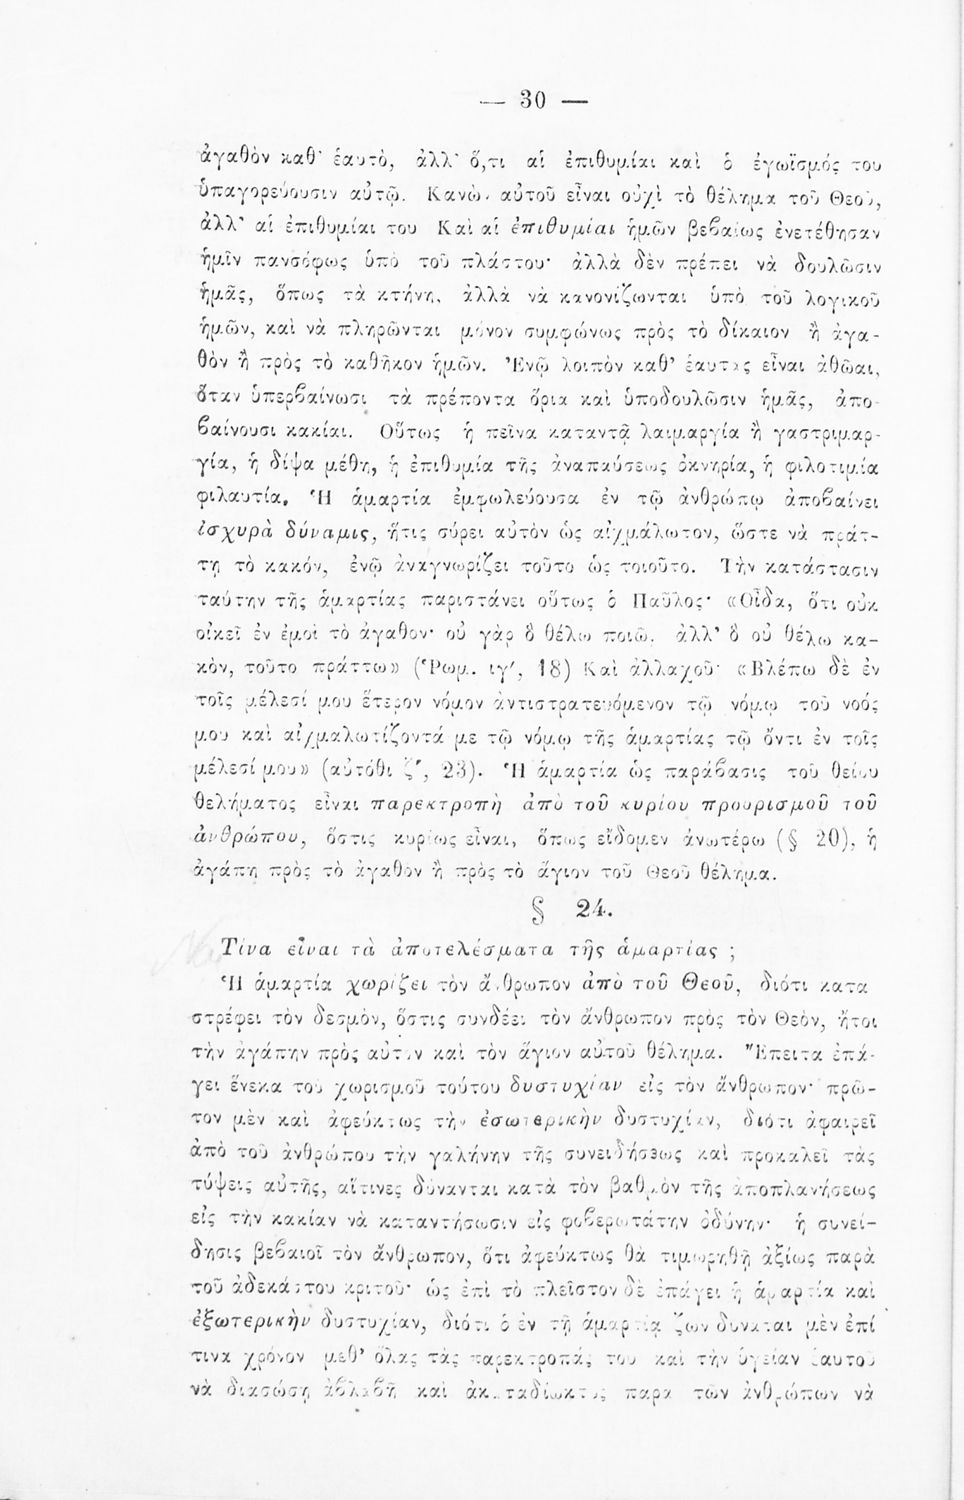 — 30 —
ἀγαθὸν καθ' ἑαυτὸ, ἀλλ' ὅ,τι αἱ ἐπιθυμίαι καὶ ὁ ἐγωϊσμός του
ὑπαγορεύουσιν αὐτῷ. Κανὼν αὐτοῦ εἶναι οὐχὶ τὸ θέλημα τοῦ Θεοῦ,
ἀλλ' αἱ ἐπιθυμίαι του Καὶ αἱ ἐπιθυμίαι ἡμῶν βεβαίως ἐνετέθησαν
ἡμῖν πανσόφως ὑπὸ τοῦ πλάστου· ἀλλὰ δὲν πρέπει νὰ δουλῶσιν
ἡμᾶς, ὅπως τὰ κτήνη, ἀλλὰ νὰ κανονίζωνται ὑπὸ τοῦ λογικοῦ
ἡμῶν, καὶ νὰ πληρῶνται μόνον συμφώνως πρὸς τὸ δίκαιον ἢ ἀγα-
θὸν ἢ πρὸς τὸ καθῆκον ἡμῶν. Ἐνῷ λοιπὸν καθ' ἑαυτὰς εἶναι ἀθῶαι,
ὅταν ὑπερβαίνωσι τὰ πρέποντα ὅρια καὶ ὑποδουλῶσιν ἡμᾶς, ἀπο-
βαίνουσι κακίαι. Οὕτως ἡ πεῖνα καταντᾷ λαιμαργία ἢ γαστριμαρ-
γία, ἡ δίψα μέθη, ἡ ἐπιθυμία τῆς ἀναπαύσεως ὀκνηρία, ἡ φιλοτιμία
φιλαυτία. Ἡ ἁμαρτία ἐμφωλεύουσα ἐν τῷ ἀνθρώπῳ ἀποβαίνει
ἰσχυρὰ δύναμις, ἥτις σύρει αὐτὸν ὡς αἰχμάλωτον, ὥστε νὰ πράτ-
τῃ τὸ κακόν, ἐνῷ ἀναγνωρίζει τοῦτο ὡς τοιοῦτο. Τὴν κατάστασιν
ταύτην τῆς ἁμαρτίας παριστάνει οὕτως ὁ Παῦλος· «Οἶδα, ὅτι οὐκ
οἰκεῖ ἐν ἐμοὶ τὸ ἀγαθον· οὐ γὰρ ὃ θέλω ποιῶ, ἀλλ' ὃ οὐ θέλω κα-
κὸν, τοῦτο πράττω» (Ῥωμ. ιγ', 18) Καὶ ἀλλαχοῦ· «Βλέπω δὲ ἐν
τοῖς μέλεσί μου ἕτερον νόμον ἀντιστρατευόμενον τῷ νόμῳ τοῦ νοός
μου καὶ αἰχμαλωτίζοντά με τῷ νόμῳ τῆς ἁμαρτίας τῷ ὄντι ἐν τοῖς
μέλεσί μου» (αὐτόθι ζ', 23). Ἡ ἁμαρτία ὡς παράβασις τοῦ θείου
θελήματος εἶναι παρεκτροπὴ ἀπὸ τοῦ κυρίου προορισμοῦ τοῦ
ἀνθρώπου, ὅστις κυρίως εἶναι, ὅπως εἴδομεν ἀνωτέρω (§ 20), ἡ
ἀγάπη πρὸς τὸ ἀγαθὸν ἢ πρὸς τὸ ἅγιον τοῦ Θεοῦ θέλημα.
§ 24.
Τίνα εἶναι τὰ ἀποτελέσματα τῆς ἁμαρτίας ;
Ἡ ἁμαρτία χωρίζει τὸν ἄνθρωπον ἀπὸ τοῦ Θεοῦ, διότι κατα
στρέφει τὸν δεσμὸν, ὅστις συνδέει τὸν ἄνθρωπον πρὸς τὸν Θεὸν, ἤτοι
τὴν ἀγάπην πρὸς αὐτὸν καὶ τὸν ἅγιον αὐτοῦ θέλημα. Ἔπειτα ἐπά-
γει ἕνεκα τοῦ χωρισμοῦ τούτου δυστυχίαν εἰς τὸν ἄνθρωπον· πρῶ-
τον μὲν καὶ ἀφεύκτως τὴν ἐσωτερικὴν δυστυχίαν, διότι ἀφαιρεῖ
ἀπὸ τοῦ ἀνθρώπου τὴν γαλήνην τῆς συνειδήσεως καὶ προκαλεῖ τὰς
τύψεις αὐτῆς, αἵτινες δύνανται κατὰ τὸν βαθμὸν τῆς ἀποπλανήσεως
εἰς τὴν κακίαν νὰ καταντήσωσιν εἰς φοβερωτάτην ὀδύνην· ἡ συνεί-
δησις βεβαιοῖ τὸν ἄνθρωπον, ὅτι ἀφεύκτως θὰ τιμωρηθῇ ἀξίως παρὰ
τοῦ ἀδεκάστου κριτοῦ· ὡς ἐπὶ τὸ πλεῖστον δὲ ἐπάγει ἡ ἁμαρτία καὶ
ἐξωτερικὴν δυστυχίαν, διότι ὁ ἐν τῇ ἁμαρτίᾳ ζων δυναται μὲν ἐπί
τινα χρόνον μεθ' ὅλας τὰς παρεκτροπάς του καὶ τὴν ὑγείαν ἑαυτοῦ
νὰ διασώσῃ ἀβλαβῆ καὶ ἀκαταδίωκτος παρα τῶν ἀνθρώπων νὰ